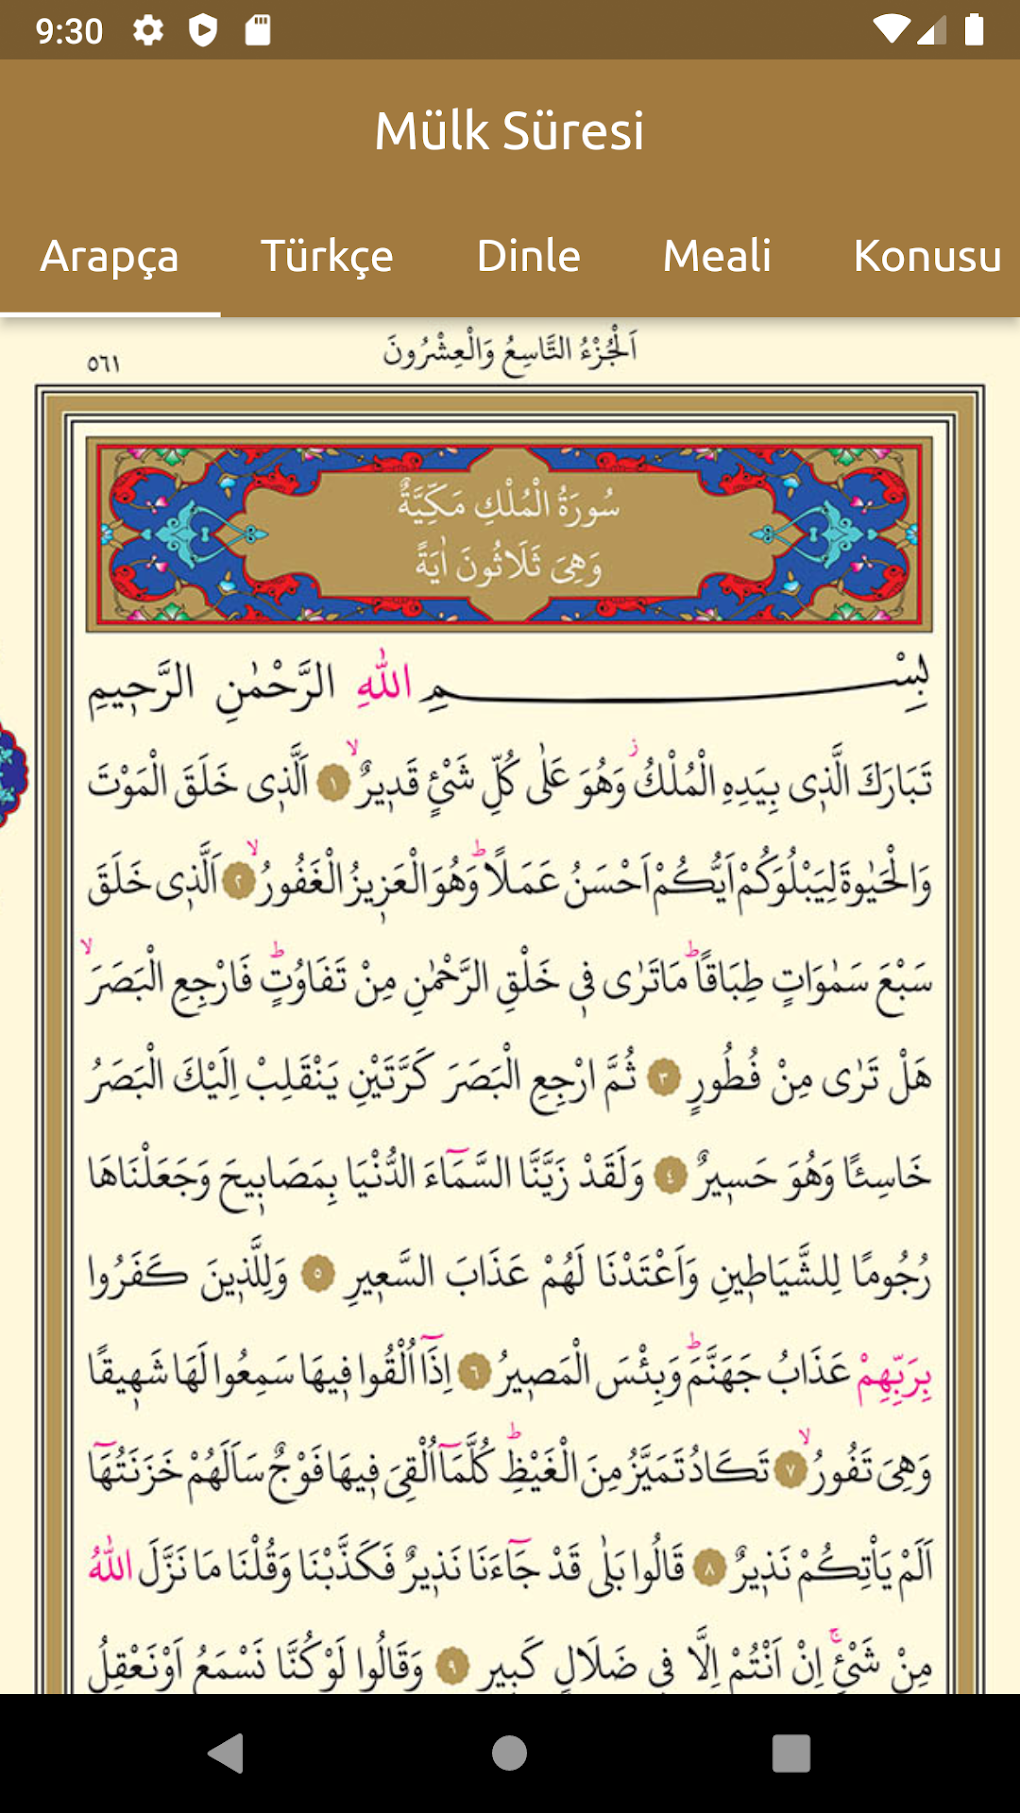 9:30
Mülk Süresi
Arapça Türkçe Dinle Meali Konusu
اَلْجُزْءُ التَّاسِعُ وَالْعِشْرُونَ
٥٦١
سُورَةُ الْمُلْكِ مَكِّيَّةٌ
وَهِىَ ثَلَاثُونَ اٰيَةً
بِسْمِ اللّٰهِ الرَّحْمٰنِ الرَّحٖيمِ
تَبَارَكَ الَّذٖى بِيَدِهِ الْمُلْكُؗ وَهُوَ عَلٰى كُلِّ شَیْئٍ قَدٖيرٌۙ ١ اَلَّذٖى خَلَقَ الْمَوْتَ
وَالْحَيٰوةَ لِيَبْلُوَكُمْ اَيُّكُمْ اَحْسَنُ عَمَلًاؕ وَهُوَ الْعَزٖيزُ الْغَفُورُۙ ٢ اَلَّذٖى خَلَقَ
سَبْعَ سَمٰوَاتٍ طِبَاقًاؕ مَا تَرٰى فٖى خَلْقِ الرَّحْمٰنِ مِنْ تَفَاوُتٍؕ فَارْجِعِ الْبَصَرَۙ
هَلْ تَرٰى مِنْ فُطُورٍ ٣ ثُمَّ ارْجِعِ الْبَصَرَ كَرَّتَيْنِ يَنْقَلِبْ اِلَيْكَ الْبَصَرُ
خَاسِئًا وَهُوَ حَسٖيرٌ ٤ وَلَقَدْ زَيَّنَّا السَّمَٓاءَ الدُّنْيَا بِمَصَابٖيحَ وَجَعَلْنَاهَا
رُجُومًا لِلشَّيَاطٖينِ وَاَعْتَدْنَا لَهُمْ عَذَابَ السَّعٖيرِ ٥ وَلِلَّذٖينَ كَفَرُوا
بِرَبِّهِمْ عَذَابُ جَهَنَّمَؕ وَبِئْسَ الْمَصٖيرُ ٦ اِذَٓا اُلْقُوا فٖيهَا سَمِعُوا لَهَا شَهٖيقًا
وَهِىَ تَفُورُۙ ٧ تَكَادُ تَمَيَّزُ مِنَ الْغَيْظِؕ كُلَّمَٓا اُلْقِىَ فٖيهَا فَوْجٌ سَاَلَهُمْ خَزَنَتُهَٓا
اَلَمْ يَاْتِكُمْ نَذٖيرٌ ٨ قَالُوا بَلٰى قَدْ جَٓاءَنَا نَذٖيرٌ فَكَذَّبْنَا وَقُلْنَا مَا نَزَّلَ اللّٰهُ
مِنْ شَیْئٍۚ اِنْ اَنْتُمْ اِلَّا فٖى ضَلَالٍ كَبٖيرٍ ٩ وَقَالُوا لَوْ كُنَّا نَسْمَعُ اَوْ نَعْقِلُ